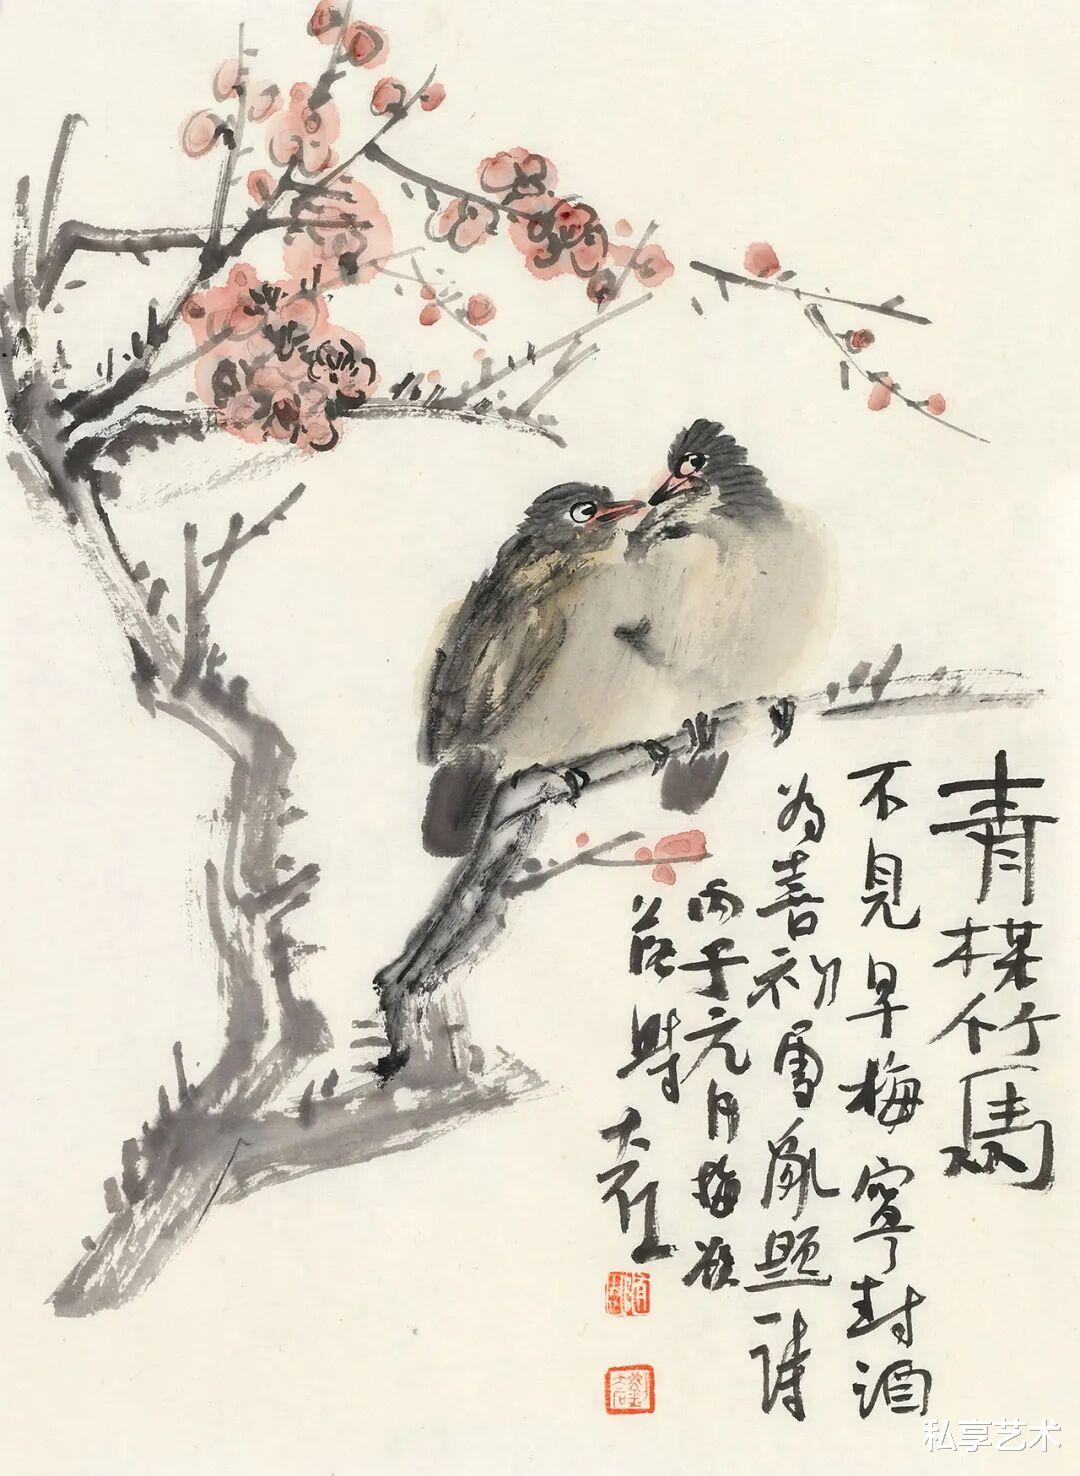 青楳竹馬
不見早梅寧封酒
為喜初雪亂題詩
丙子元月梅
時
大石
私享艺术